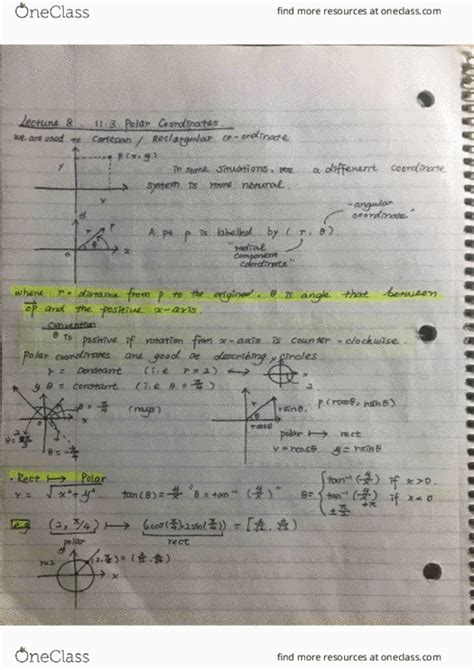 OneClass
find more resources at oneclass.com
Lecture 8 11.3 Polar Coordinates
we are used to Cartesian / Rectangular co-ordinate
y
P(x, y)
x
In some situations, a different coordinate
system is more natural.
y
P
r
θ
x
A pt P is labelled by (r, θ)
"angular coordinate"
"radial component coordinate"
where r = distance from P to the origined, θ is angle that between
OP and the positive x-axis
Convention
θ is positive if rotation from x-axis is counter-clockwise.
Polar coordinates are good at describing circles
r = constant (i.e r = 2) ⟷
2
θ = constant (i.e θ = π/4)
y
θ = π/4
(rays)
r
rsinθ
rcosθ
P(rcosθ, rsinθ)
polar ↦ rect
x = rcosθ y = rsinθ
• Rect ↦ Polar
r = √x² + y² tan(θ) = y/x "θ = tan⁻¹ (y/x)" θ = { tan⁻¹ (y/x) if x > 0
tan⁻¹ (y/x) + π if x < 0
± π/2
e.g (2, π/4) ↦ (2cos(π/4), 2sin(π/4))
polar
rect
r=2
x
OneClass
find more resources at oneclass.com